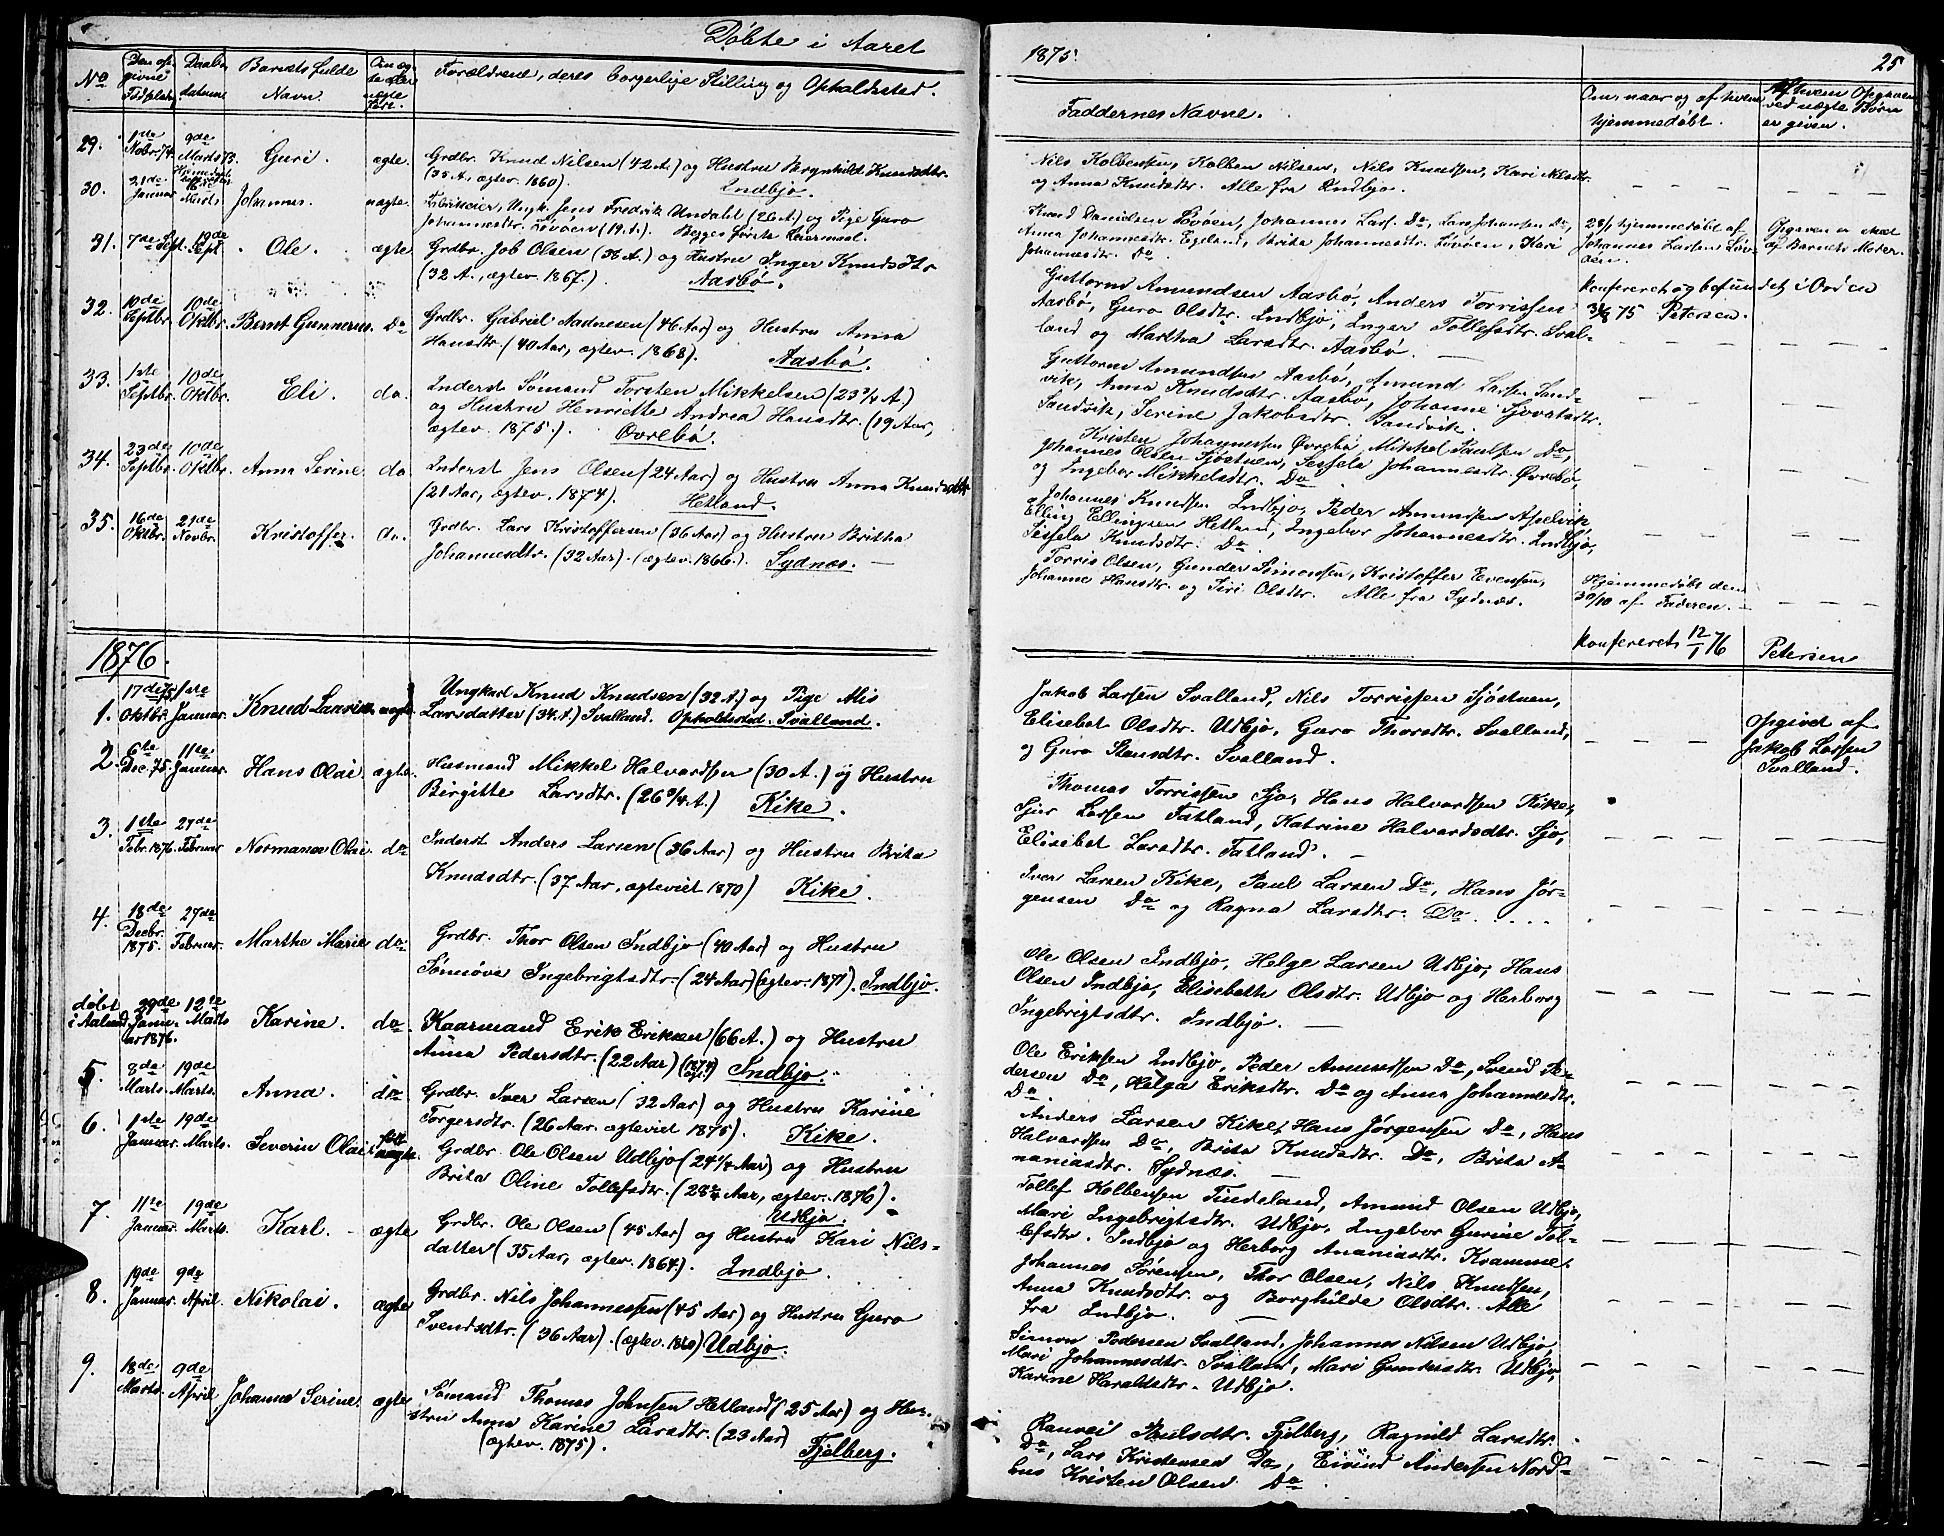 Døbte i Aaret
1875.
25
No
Den opgivne Fødselsdag
Daabs datum
Barnets fulde Navn.
Om ægte eller uægte født.
Forældrene, deres borgerlige Stilling og Opholdssted.
Faddernes Navne.
Om, naar og af hvem hjemmedøbt.
Af hvem Opgaven ved uægte Børn er given.
29. 1ste Nobr. 74. 9de Marts 73. Guri. ægte. Grdbr. Knud Nilsen (42 A.) og Hustru Brynhild Knudsdtr.
(35 A., ægtev. 1860). Indbjo.
Nils Kolbensen, Kolben Nilsen, Nils Knudsen, Kari Nilsdtr.
og Anna Knudsdtr. Alle fra Indbjo.
30. 21de Januar Marts Johannes. uægte. Ungk. Jens Fredrik Undalet (26 A.) og Pige Guro
Johannesdtr. Løvøen (19 A.) Begges første Leiermaal.
Knud Danielsen Løvøen, Johannes Lars. Do, Lars Johansen Do,
Anna Johannesdtr. Egeland, Brita Johannesdtr. Løvøen, Kari
Johannesdtr. Do.
28/1 hjemmedøbt af
Johannes Larsen Løv-
øen.
Opgaven er skeet
af Barnets Moder.
31. 7de Sept. 19de Sept. Ole. ægte. Grdbr. Job Olsen (36 A.) og Hustru Inger Knudsdtr.
(32 A., ægtev. 1867.) Aasbø.
Guttorm Amundsen Aasbø, Anders Torrissen
Aasbø, Guro Olsdtr. Indbjo, Inger Tollefsdtr. Sval-
land og Martha Larsdtr. Aasbø.
Konfereret og befundet i Orden
75 Petersen.
32. 10de Septbr. 10de Oktbr. Bernt Gunnerius. Do Grdbr. Gabriel Aadnesen (46 Aar) og Hustru Anna
Hansdtr. (40 Aar, ægtev. 1868). Aasbø.
Guttorm Amundsen Aasbø, Amund Larsen Sand-
vik, Anna Knudsdtr. Aasbø, Johanne Sjovatsdtr.
Sandvik, Serine Jakobsdtr. Sandvik.
33. 1ste Septbr. 10de Oktbr. Eli. do. Inderst Sømand Torsten Mikkelsen (23 3/4 A.)
og Hustru Henriette Andrea Hansdtr. (19 Aar,
ægtev. 1875.) Øvrebø.
Kristen Johannessen Øvrebø, Mikkel Paulsen Do,
Johannes Olsen Sjøstuen, Sessela Johannesdtr. Øvrebø,
og Ingebor Mikkelsdtr. Do
34. 23de Septbr. 10de Oktbr. Anna Serine. do. Inderst Jens Olsen (24 Aar) og Hustru Anna Knudsdtr.
(21 Aar, ægtev. 1874). Hetland.
Johannes Knudsen Indbjo, Peder Amundsen Apelvik,
Elling Ellingsen Hetland, Ingebor Johannesdtr. Indbjo,
Sessela Knudsdtr. Do.
35. 16de Oktbr. 21de Novbr. Kristoffer. do. Grdbr. Lars Kristoffersen (36 Aar) og Hustru Britha
Johannesdtr. (32 Aar). (ægtev. 1866.). Sydnes.
Torris Olsen, Gunder Simonsen, Kristoffer Evensen,
Johanne Hansdtr. og Siri Olsdtr. Alle fra Sydnæs.
Hjemmedøbt den
30/10 af Faderen.
Konfereret 12/1 76 Petersen
1876.
1. 17de Oktbr. 75 1ste Januar. Knud Laurits. uægte. Ungkarl Knud Knudsen (32 A.) og Pige Alis
Larsdatter (34 A.) Svalland. Opholdssted. Svalland.
Jakob Larsen Svalland, Nils Torrissen Sjøstuen,
Elisebet Olsdtr. Udbjo, Guro Thorsdtr. Svalland,
og Guro Stensdtr. Svalland.
Opgivet af
Jakob Larsen
Svalland.
2. 6te Dec. 75. 11te Januar. Hans Olai. ægte. Husmand Mikkel Halvardsen (30 A.) og Hustru
Birgitte Larsdtr. (26 3/4 A.) Kike.
Thomas Torrissen Sjo, Hans Halvardsen Kike,
Sjur Larsen Fatland, Katrine Halvardsdtr. Sjo,
Elisebet Larsdtr. Fatland.
3. 1ste Febr. 1876. 27de Februar Normanes Olai. do Inderst Anders Larsen (36 Aar) og Hustru Brita
Knudsdtr. (37 Aar, ægteviet 1870) Kike.
Iver Larsen Kike, Paul Larsen Do, Hans Jør-
gensen Do og Ragna Larsdtr. Do.
4. 18de Decbr. 1875. 27de Februar. Marthe Marie do. Grdbr. Thor Olsen Indbjo (40 Aar) og Hustru
Sønnøva Ingebrigtsdtr. (24 Aar) (ægtev. 1871). Indbjo.
Ole Olsen Indbjo, Helge Larsen Udbjo, Hans
Olsen Indbjo, Elisebeth Olsdtr. Udbjo og Herborg
Ingebrigtsdtr. Indbjo.
døbt i Aalund 29de Januar 1876. 12te Marts Karine. do. Kaarmand Erik Eriksen (66 A.) og Hustru
Anna Pedersdtr. (22 Aar) Indbjo.
Ole Eriksen Indbjo, Peder Amundsen Do, Svend Pe-
dersen Do, Helga Eriksdtr. Do og Anna Johannesdtr.
Do.
5. 8de Marts. 19de Marts. Anna. do. Grdbr. Iver Larsen (32 Aar) og Hustru Karine
Torgersdtr. (26 Aar. ægteviet 1875). Kike.
Anders Larsen Kike, Hans Jørgensen Do, Hans
Halvardsen Do, Brita Knudsdtr. Do, Brita A-
naniasdtr. Sydnæs.
6. 1ste Januar. 19de Marts. Severin Olai. født uægte. Grdbr. Ole Olsen Udbjo (24 1/4 Aar) og Hustru
Brita Oline Tollefsdtr. (28 3/4 Aar, ægtev. 1876).
Udbjo.
Tollef Kolbensen Tindeland, Amund Olsen Udbjo,
Mari Ingebrigtsdtr. Udbjo, Ingebor Gurine Tol-
lefsdtr. Indbjo og Herborg Ananiasdtr. Kramme.
7. 11te Januar. 19de Marts. Karl. ægte Grdbr. Ole Olsen (45 Aar) og Hustru Kari Nils-
datter (35 Aar, ægtev. 1864.). Indbjo.
Johannes Sørensen, Thor Olsen, Nils Knudsen,
Anna Knudsdtr. og Borghilde Olsdtr. Alle
fra Indbjo.
8. 19de Januar. 9de April. Nikolai. ægte Grdbr. Nils Johannessen (45 Aar) og Hustru Guro
Svendsdtr. (36 Aar). (ægtev. 1860) Udbjo.
Simon Pedersen Svalland, Johannes Nilsen Udbjo,
Mari Johannesdtr. Svalland, Mari Gundersdtr. Udbjo,
Karine Haraldsdtr. Udbjo.
9. 18de Marts. 9de April Johanna Serine. ægte. Sømand Thomas Johnsen Hetland (25 Aar) og Hu-
stru Anna Karine Larsdtr. (23 Aar)
(ægtev. 1875). Fjelberg.
Ranvei Paulsdtr. Fjelberg, Ragnild Larsdtr.
Do, Lars Kristensen Do, Eivind Andersen Nord-
hus Kristen Olsen Do